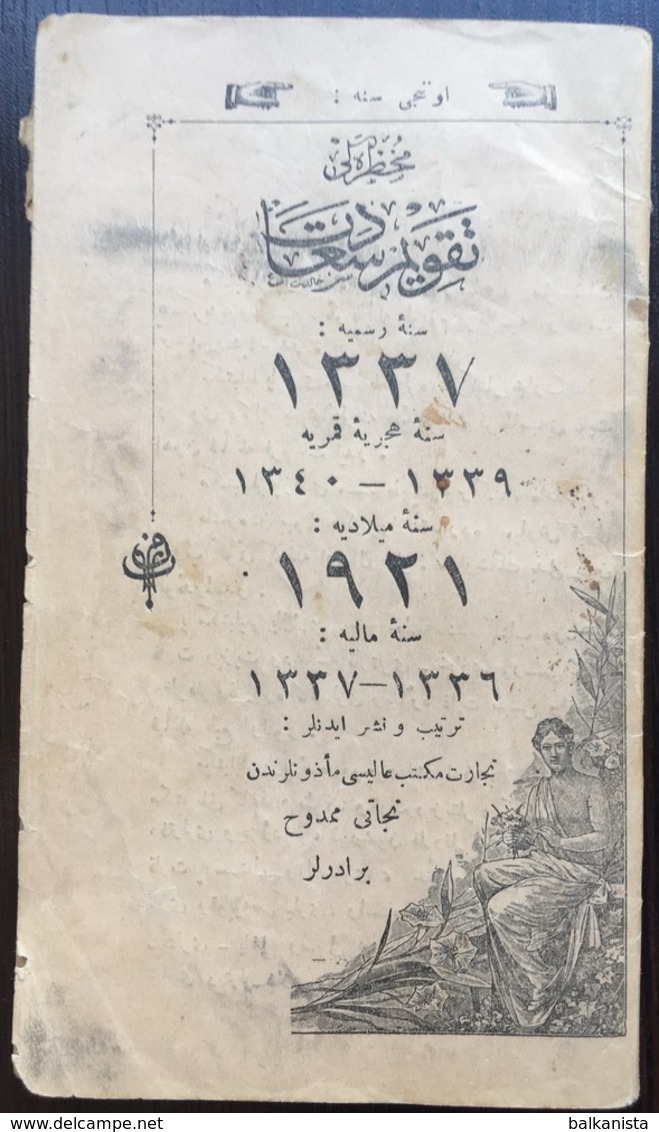 اوتنجی سنه :
مخطره‌لی
تقویم سعادت
سنهٔ رسمیه :
١٣٣٧
سنهٔ هجریهٔ قمریه
١٣٣٩ — ١٣٤٠
سنهٔ میلادیه :
١٩٢١
سنهٔ مالیه :
١٣٣٦—١٣٣٧
ترتیب و نشر ایدنلر :
تجارت مکتب عالیسی مأذونلرندن
نجاتی ممدوح
برادرلر
www.delcampe.net
balkanista